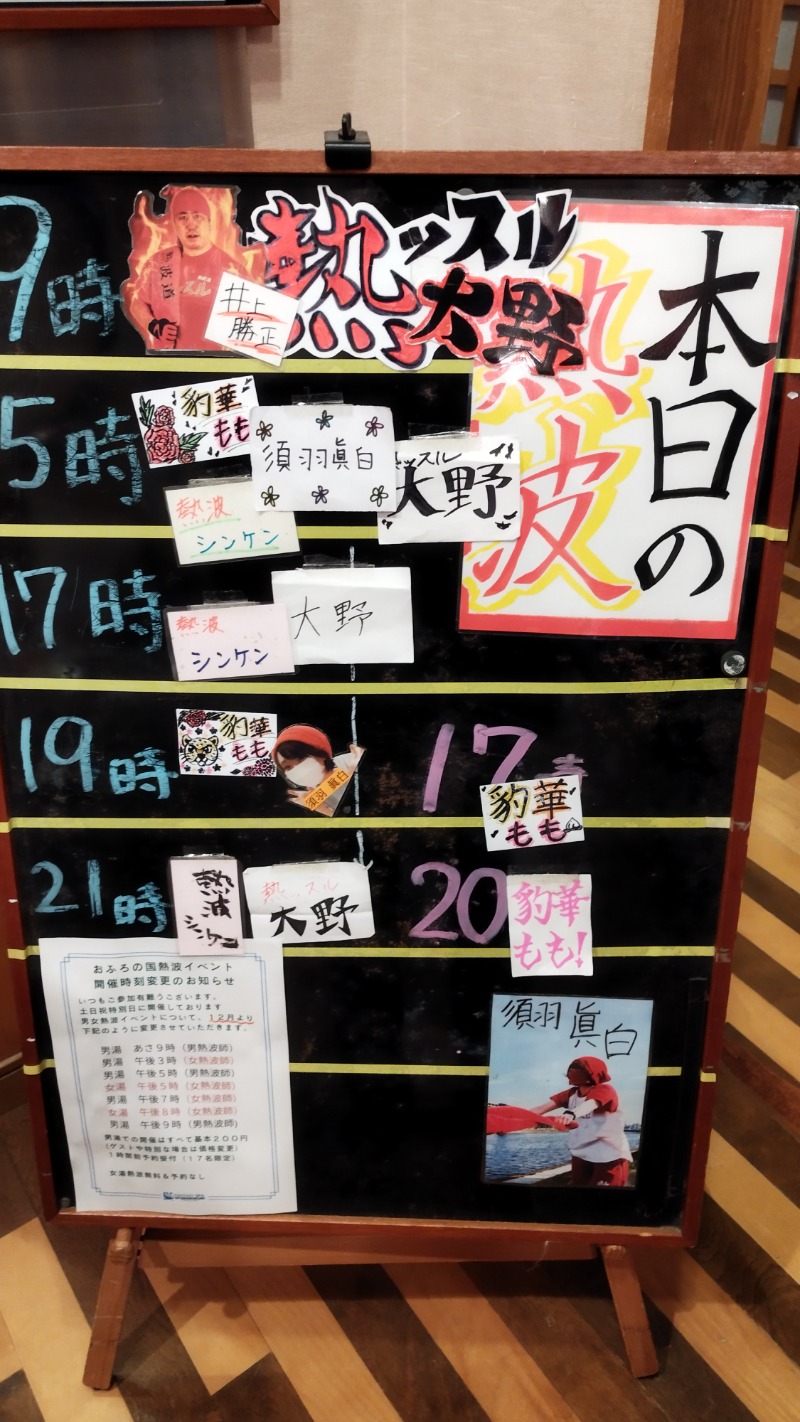 本日の
熱波
9時
波道
井上
勝正
熱ッスル
大野
5時
豹華
もも
須羽眞白
ッスル
大野
熱波
シンケン
17時
熱波
シンケン
大野
19時
豹華
もも
須羽 眞白
17
豹華
もも
21時
熱波
シンケン
熱ッスル
大野
20
豹華
もも!
おふろの国熱波イベント
開催時刻変更のお知らせ
いつもご参加有難うございます。
土日祝特別日に開催しております
男女熱波イベントについて、12月より
下記のように変更させていただきます。
男湯 あさ9時 (男熱波師)
男湯 午後3時 (女熱波師)
男湯 午後5時 (男熱波師)
女湯 午後5時 (女熱波師)
男湯 午後7時 (女熱波師)
女湯 午後8時 (女熱波師)
男湯 午後9時 (男熱波師)
男湯での開催はすべて基本200円
(ゲストや特別な場合は価格変更)
1時間前予約受付 (17名限定)
女湯熱波無料&予約なし
須羽 眞白